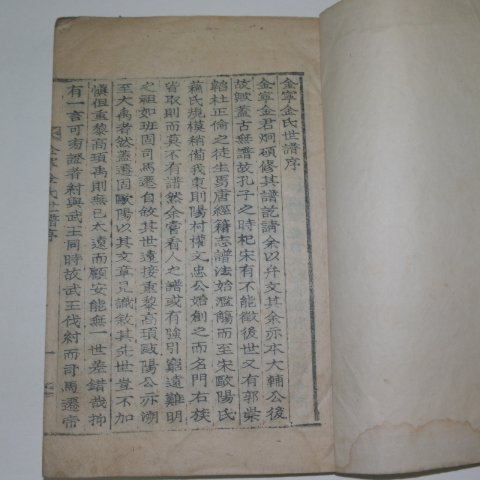 金寧金氏世譜序
金寧金君炯碩修其譜訖請余以弁文其余亦本大輔公後
故歟蓋古無譜故孔子之時杞宋有不能徵後世又有郭崇
韜杜正倫之徒生焉唐經籍志譜法始濫觴而至宋歐陽氏
蘇氏規模稍備我東則陽村權文忠公始創之而名門右族
皆取則而莫不有譜然余嘗看人之譜或有強引窮遠難明
之祖如班固司馬遷自敘其世遠接重黎高頊歐陽公亦溯
至大禹者然蓋遷固歐陽以其文章見識敘其先世豈不加
愼但重黎高頊禹則無已太遠而顧安能無一世差錯哉抑
有一言可旁證者紂與武王同時故武王伐紂而司馬遷帝
金寧金氏世譜序